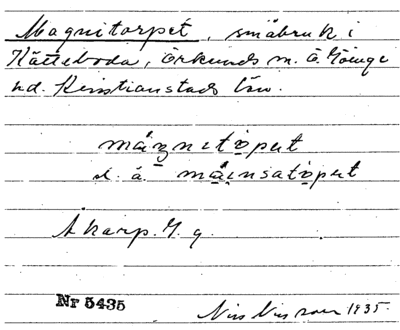 Magnitorpet, småbruk i
Kätteboda, Örkunds m. Ö. Göinge
hd. Kristianstads län.
mågnetoput
d. å. måinsatoput
Åkarp. G. g.
Nr 5435
Nils Nilsson 1935.